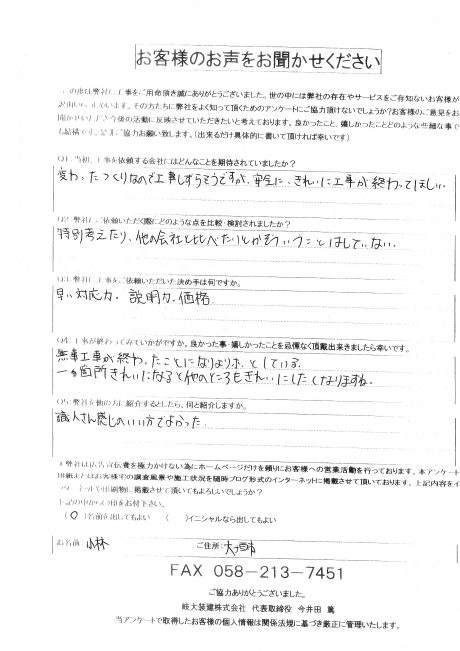 お客様のお声をお聞かせください
この度は弊社に工事をご用命頂き誠にありがとうございました。世の中には弊社の存在やサービスをご存知ないお客様が
沢山いらっしゃいます。その方たちに弊社をよく知って頂くためのアンケートにご協力頂けないでしょうか?お客様のご意見をお
聞かせいただき今後の活動に反映させていただきたいと考えております。良かったこと、嬉しかったことどのような些細な事で
も結構です。是非ご協力お願い致します。(出来るだけ具体的に書いて頂ければ幸いです)
Q1.当初、工事を依頼する会社にはどんなことを期待されていましたか?
変わったつくりなので工事しずらそうですが、安全に、きれいに工事が終わってほしい。
Q2.弊社にご依頼いただく際にどのような点を比較・検討されましたか?
特別考えたり、他の会社と比べたりとかそういうことはしていない。
Q3.弊社に工事をご依頼いただいた決め手は何ですか。
早い対応力、説明力、価格
Q4.工事が終わってみていかがですか。良かった事・嬉しかったことを忌憚なく頂戴出来きましたら幸いです。
無事工事が終わったことになりよりホッとしている。
一ヶ箇所きれいになると他のところもきれいにしたくなりますね。
Q5.弊社を他の方に紹介するとしたら、何と紹介しますか。
職人さん感じのいい方でよかった
*弊社は広告宣伝費を極力かけない為にホームページだけを頼りにお客様への営業活動を行っております。本アンケート
用紙またはお客様宅の調査風景や施工状況を随時ブログ形式のインターネットに掲載させて頂いております。上記内容をイ
ンターネットや印刷物に掲載させて頂いてもよろしいでしょうか?
下記の中から○印をお付下さい。
(○)名前を出してもよい ( )イニシャルなら出してもよい
お名前: 小林 ご住所: 大垣市
FAX 058-213-7451
ご協力ありがとうございました。
岐大装建株式会社 代表取締役 今井田 篤
当アンケートで取得したお客様の個人情報は関係法規に基づき厳正に管理いたします。